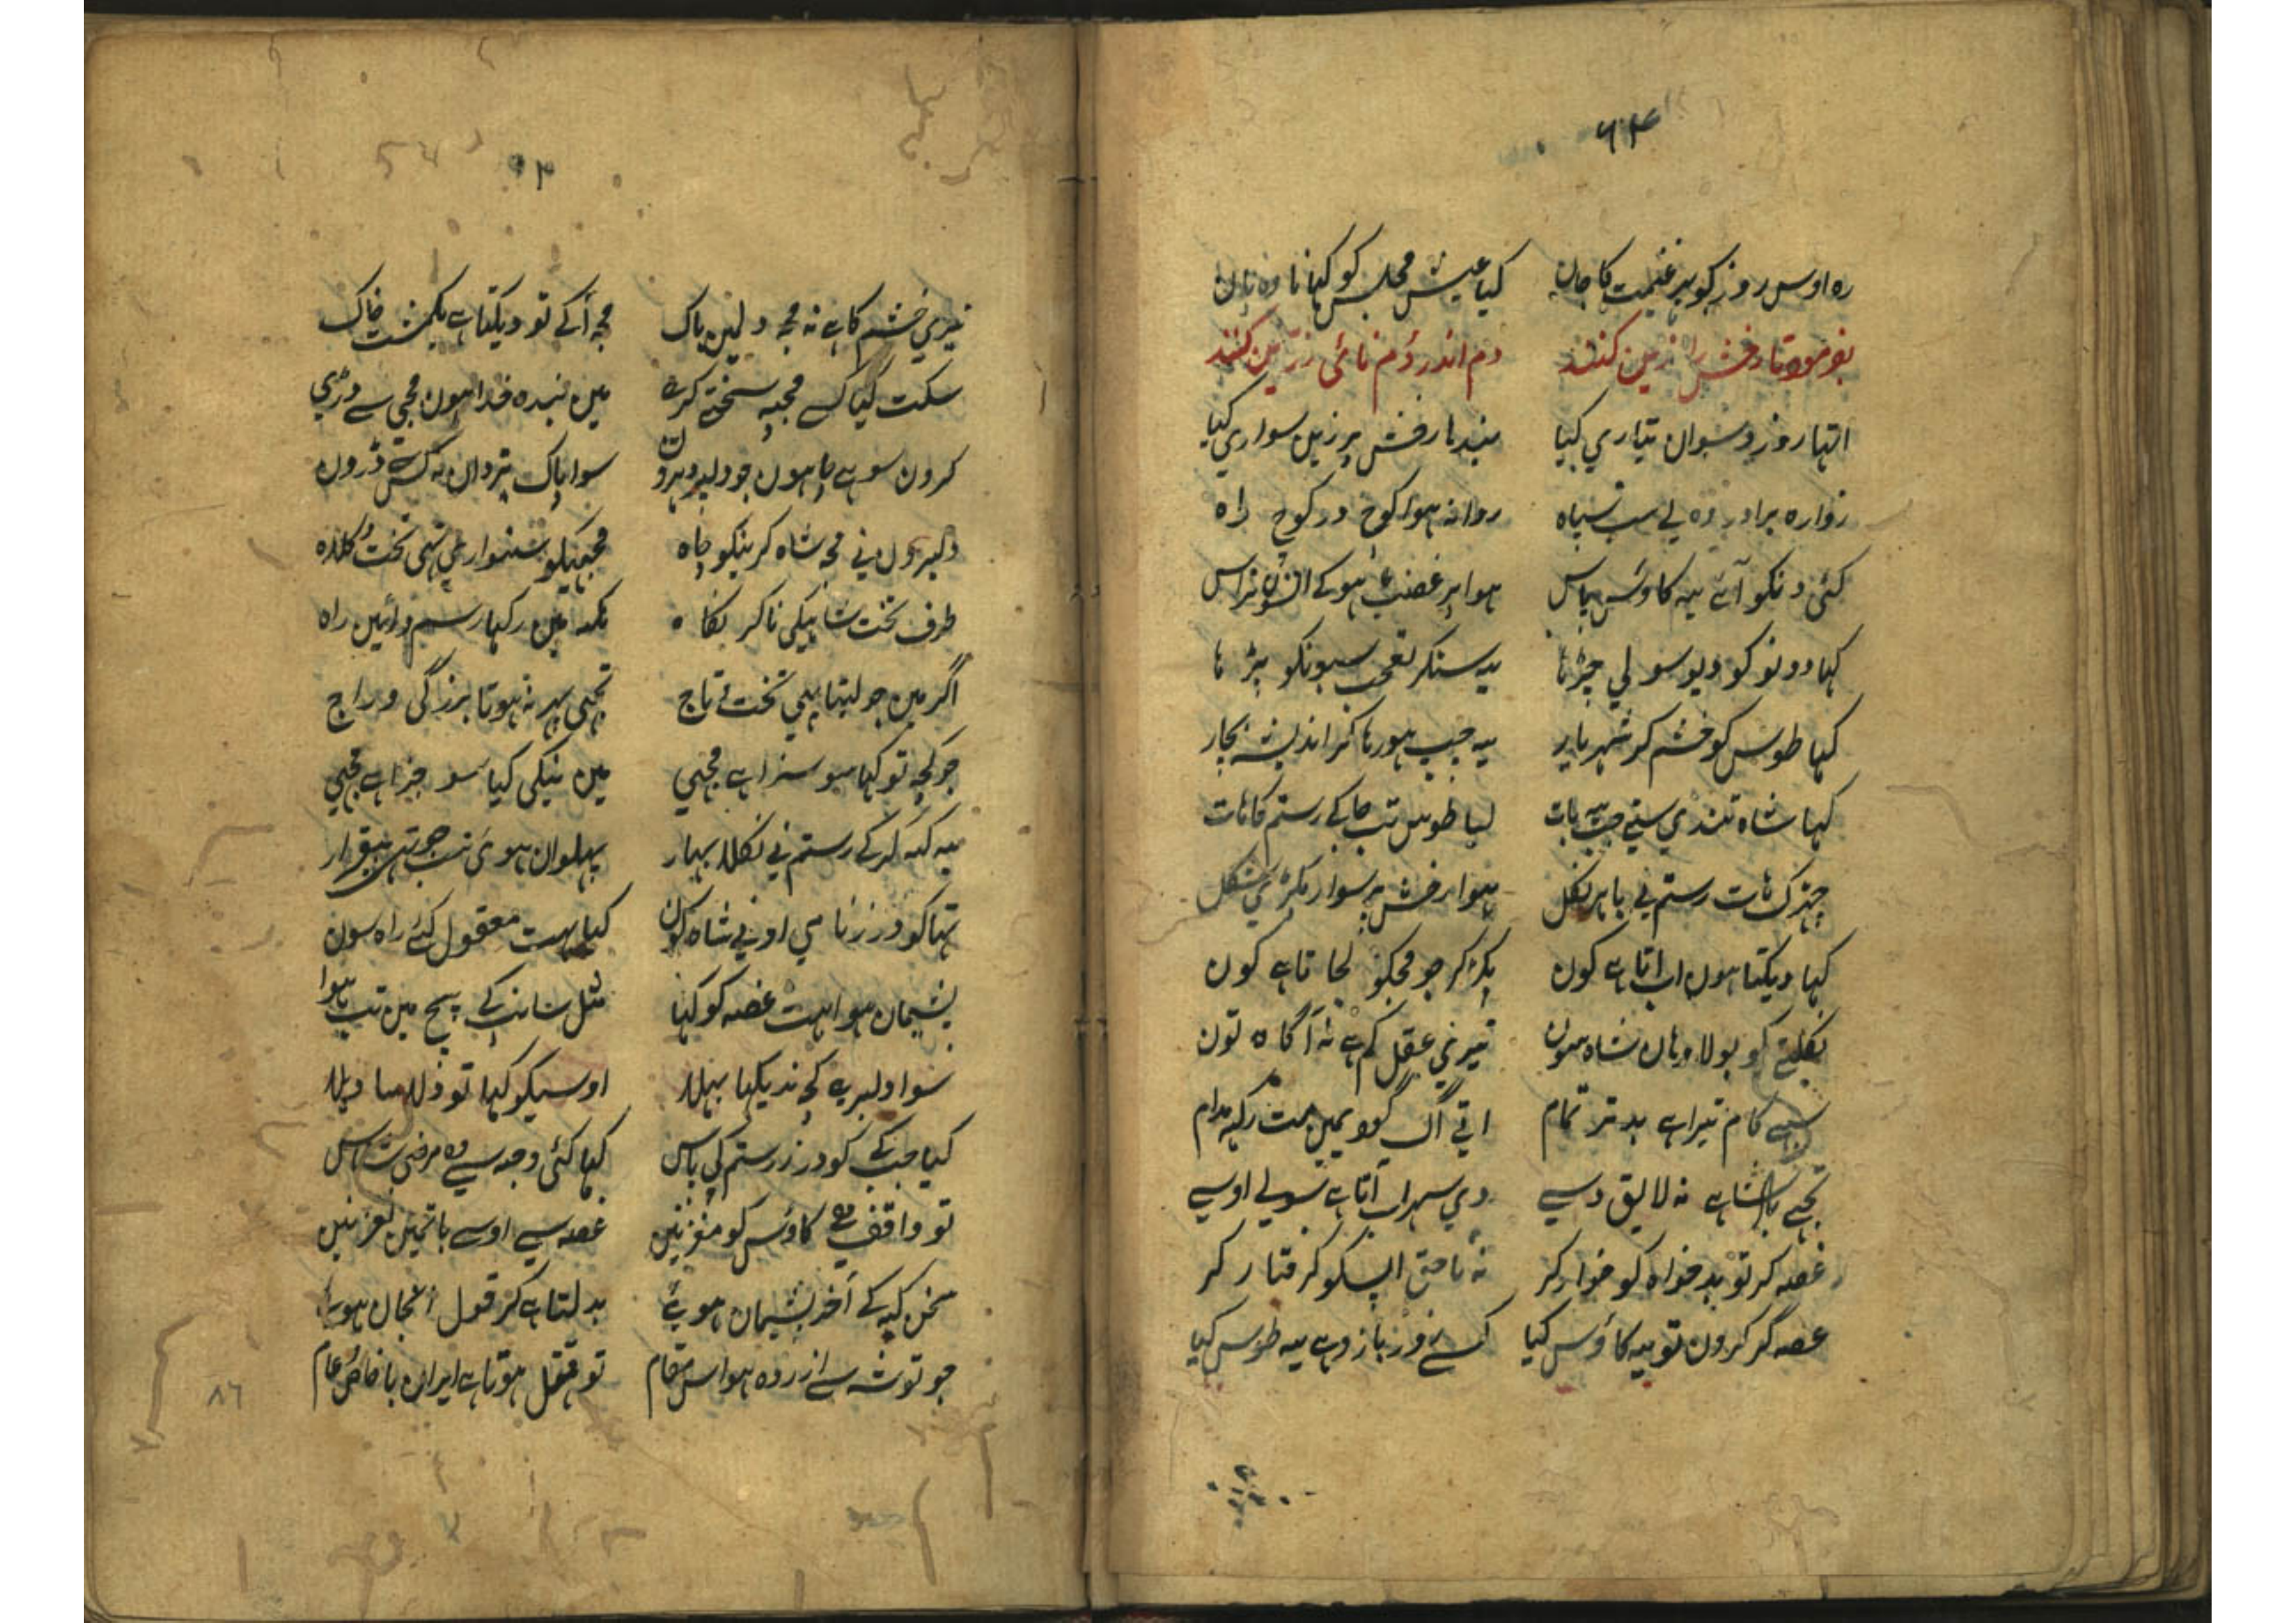 ۶۴
رہ اوس روز کو پر غنیمت کا جان کیا عیش مجلس کو کہانا وہ نان
بفرمود تا رخش را زین کنند دم اندر دم نائی زرین کنند
اتہا روز دسوان تیاری کیا بندہا رخش پر زین سواری کیا
زوارہ برادر وہ لے سب سپاہ روانہ ہوا کوچ در کوچ راہ
کئی دنکو آئے یہ کاوس پاس ہوا پر غضب ہو کے
کہا دونو کو دیو سولی چڑہا یہ سنکر تعجب سبہونکو بڑہا
کہا طوس کو خشم کر شہریار یہ چپ ہو رہا کر اندیشہ بچار
کہا شاہ تندی ستے جب یہ بات لیا طوس تب جا کے رستم کا ہات
چہڑک ہات رستم نے باہر نکل ہوا رخش پر سوار پکڑی شکل
کہا دیکتا ہون اب اتا ہے کون پکڑ کر جو مجکو لجاتا ہے کون
نکلتے کو بولا وہان شاہ سون تیری عقل کم ہے نہ آگاہ تون
سبہے کام تیرا ہے بدتر تمام اتی آگ مت رکہہ مدام
تجہے نہ لایق دسے وہی سہراب آتا ہے سولی اوسے
غصہ کر تو بدخواہ کو خوار کر نہ ناحق اپسکو گرفتار کر
غصہ گر کرون تو یہ کاؤس کیا کسے زور بازو ہے یہ طوس کیا
تیری خشم کا ہے نہ مجہ دلمین باک مجہ آگے تو دیکتا ہے یکمشت خاک
سکت کیا کسے مجہپہ سختے کرے مین بندہ خدا ہون مجہی سے ڈری
کرون سو ہے چاہون جو دلبر دہرون سوا پاک یزدان نہ کس تے ڈرون
دلیرون نے مجہ شاہ کرنیکو چاہ مجہیکو سنوارے تہی تخت و کلاہ
طرف تخت شاہیکی نا کر نگاہ نگہ مین رکہا رسم و آئین راہ
اگر مین جو لیتا یہی تخت تاج تجہی پہر نہ ہوتا بزرگی و راج
جو کچہ تو کہا سو سزا ہے مجہی مین نیکی کیا سو جزا ہے مجہی
یہ کہہ کر کے رستم نے نکلا بہار پہلوان ہوئی سب بیقرار
تہا کودرز نامی اونے شاہ کون کہا بہت معقول کئے راہ سون
پشیمان ہوا بہت غصہ کو کہا مثل سانپ کے پیچ مین تب ہوا
سوا دلبری کچہ ندیکہا بہلا اوسیکو کہا تو
کہا جب کے کودرز رستم کے پاس کہا کئی وجہ سے وہ مرضی شناس
تو واقف ہے کاوس کو مغز نین غصہ سے اوسے باتمین نغز نین
سخن کہہ کے آخر پشیمان ہوئے بدلتا ہے کر قول انجان ہوئے
جو تو شہ سے ازردہ ہوا اس مقام تو قتل ہوتا ہے ایران با خاص و عام
۸۶